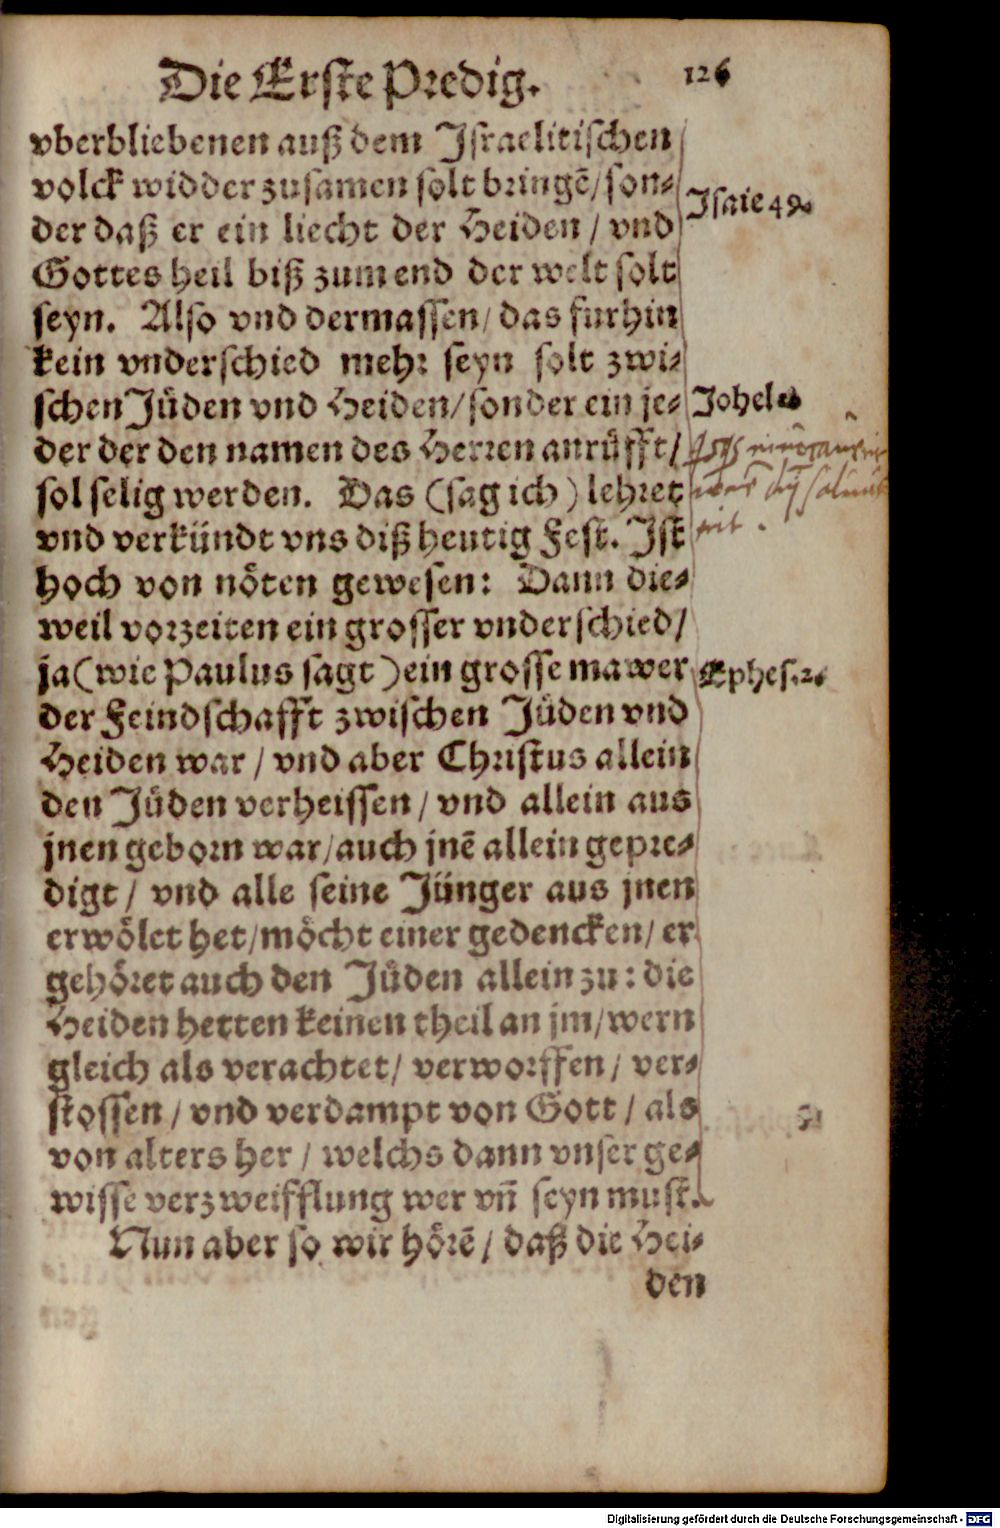 Die Erste Predig. 126
vberbliebenen auß dem Israelitischen
volck widder zusamen solt bringē/ son-
Isaie 49.
der daß er ein liecht der Heiden / vnd
Gottes heil biß zum end der welt solt
seyn. Also vnd dermassen/ das furhin
kein vnderschied mehr seyn solt zwi-
schen Jüden vnd Heiden/ sonder ein je-
Johel
der der den namen des Herren anrüfft/
sol selig werden. Das (sag ich) lehret
vnd verkündt vns diß heutig Fest. Ist
hoch von nöten gewesen: Dann die-
weil vorzeiten ein grosser vnderschied/
ja (wie Paulus sagt) ein grosse mawer
Ephes. 2.
der Feindschafft zwischen Jüden vnd
Heiden war / vnd aber Christus allein
den Jüden verheissen / vnd allein aus
jnen geborn war/ auch jnē allein gepre-
digt / vnd alle seine Jünger aus jnen
erwölet het/ möcht einer gedencken/ er
gehöret auch den Jüden allein zu: die
Heiden hetten keinen theil an jm/ wern
gleich als verachtet/ verworffen/ ver-
stossen / vnd verdampt von Gott / als
von alters her / welchs dann vnser ge-
wisse verzweifflung wer vñ seyn must.
Nun aber so wir hörē / daß die Hei-
den
Digitalisierung gefördert durch die Deutsche Forschungsgemeinschaft - DFG